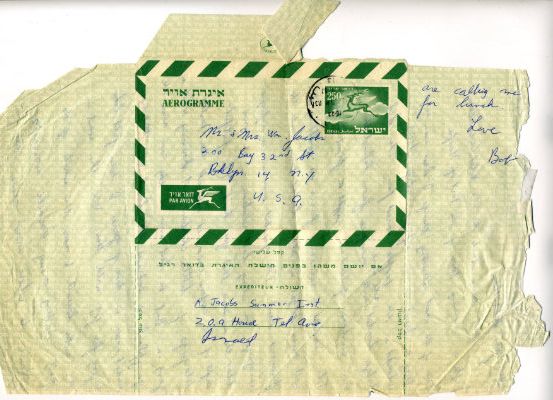 איגרת אויר
AEROGRAMME
250
ישראל
Mr & Mrs Wm. Jacobs
200 Bay 32nd St
Bklyn 14 N.Y
U.S.A
דואר אויר
PAR AVION
are calling me
for lunch
Love
Bob
קפל שלישי
אם יושם משהו בפנים תישלח האיגרת בדואר רגיל
השולח - EXPEDITEUR
R. Jacobs Summer Inst
Z.O.A House Tel Aviv
Israel